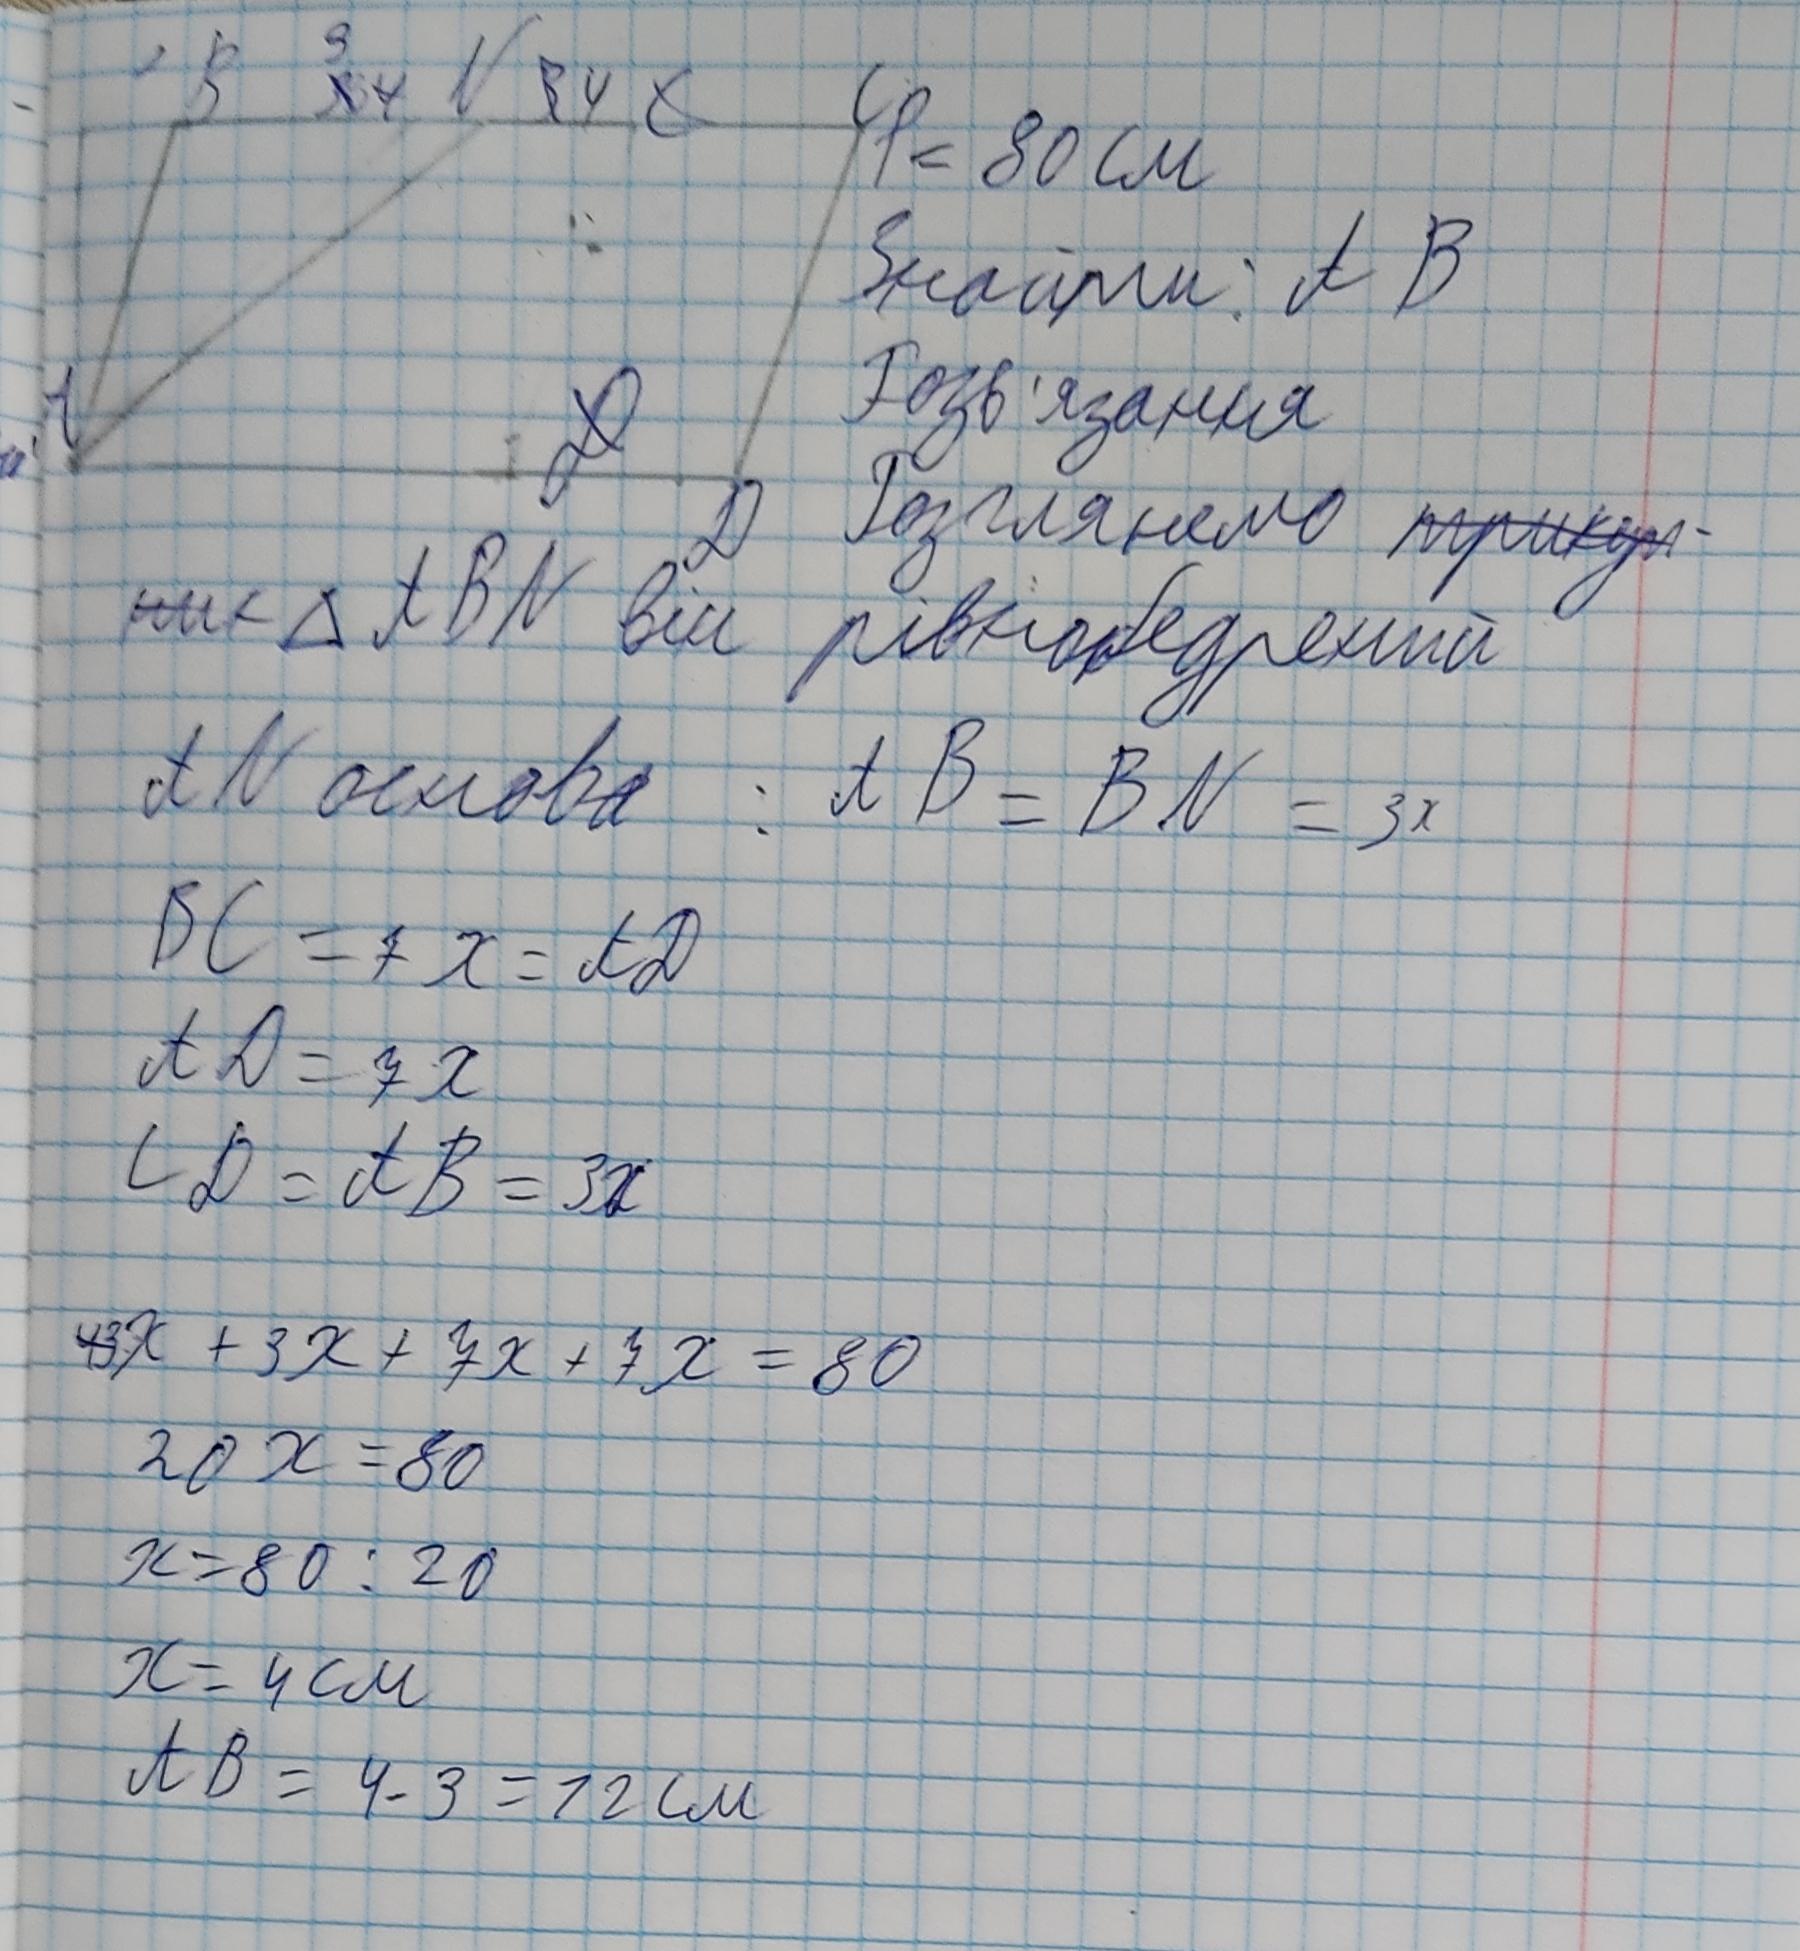 B 3 N 4 C C
P = 80 см
Знайти: AB
A
Розв'язання
D
D Розглянемо трикут-
ник △ ABN він рівнобедрений
AN основа : AB = BN = 3x
BC = 7x = AD
AD = 7x
CD = AB = 3x
3x + 3x + 7x + 7x = 80
20x = 80
x = 80 : 20
x = 4 см
AB = 4 · 3 = 12 см